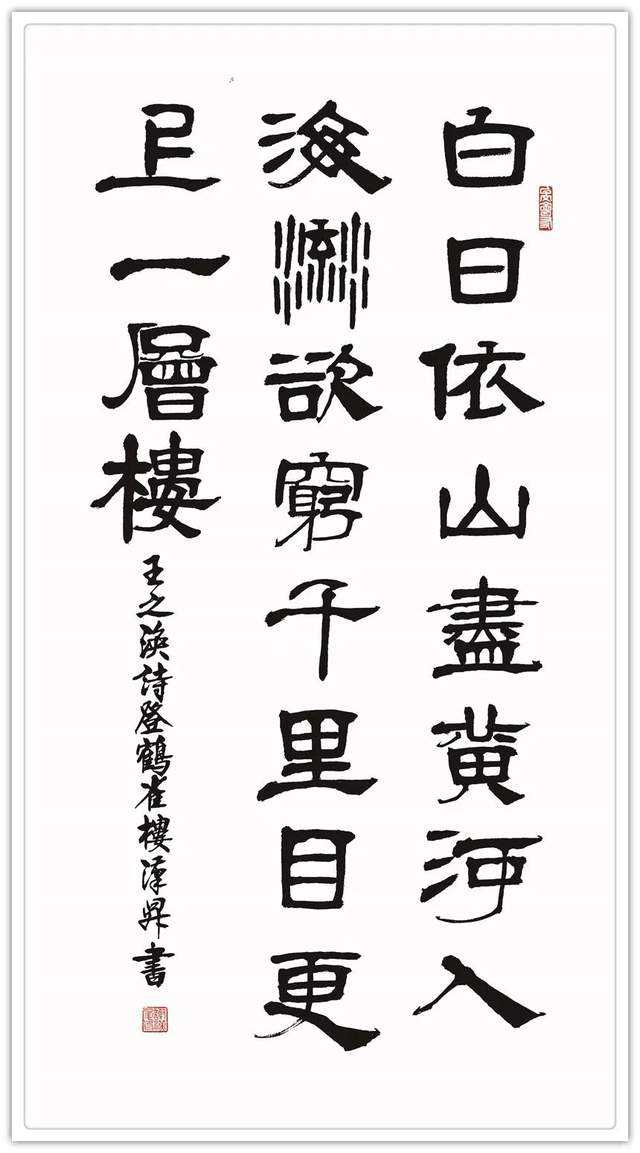 白日依山盡黄河入
海流欲窮千里目更
上一層樓
王之渙詩登鶴雀樓昇書